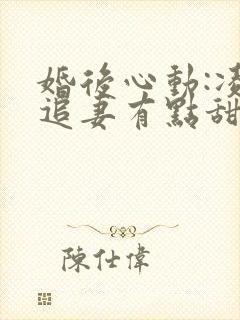 婚後心動:凌
追妻有點甜
陳仕偉